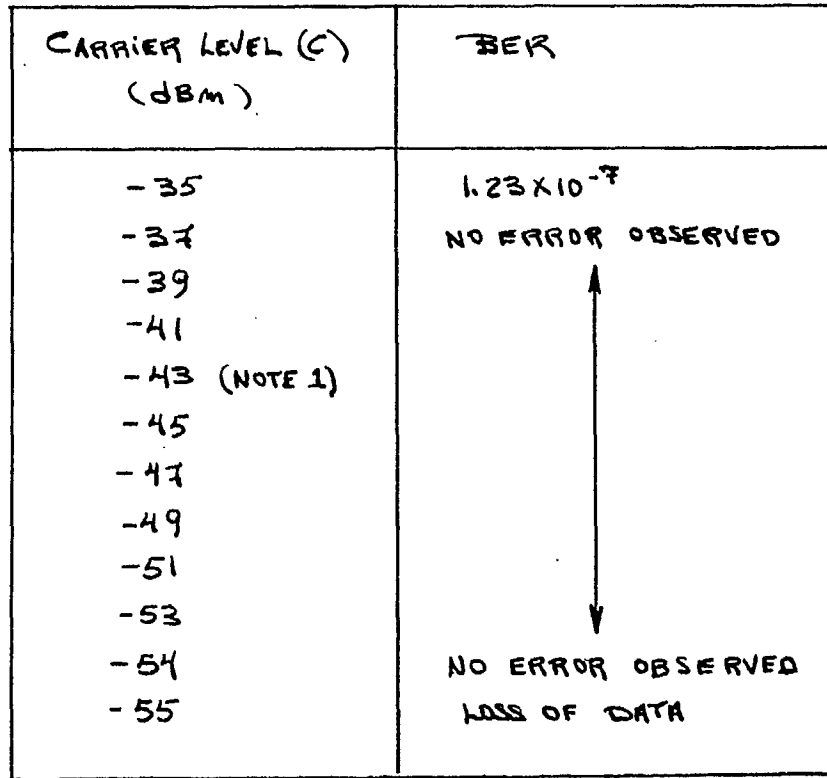 CARRIER LEVEL (C) BER
(dBm)
-35 1.23 X 10-7
-37 NO ERROR OBSERVED
-39
-41
-43 (NOTE 1)
-45
-47
-49
-51
-53
-54 NO ERROR OBSERVED
-55 LOSS OF DATA